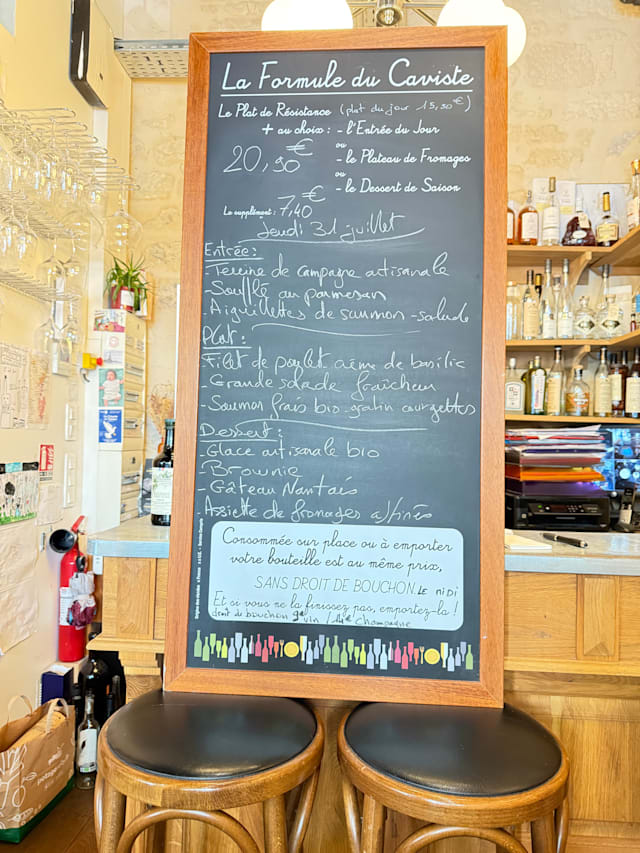 La Formule du Caviste
Le Plat de Résistance (plat du jour 15,50€)
+ au choix : - l'Entrée du Jour
ou
20,90€ - le Plateau de Fromages
ou
- le Dessert de Saison
Le supplément : 7,40€
Jeudi 31 juillet
Entrée :
- Terrine de campagne artisanale
- Soufflé au parmesan
- Aiguillettes de saumon - salade
Plat :
- Filet de poulet crème de basilic
- Grande salade fraîcheur
- Saumon frais bio - gratin courgettes
Dessert :
- Glace artisanale bio
- Brownie
- Gâteau Nantais
- Assiette de fromages affinés
Consommée sur place ou à emporter
votre bouteille est au même prix,
SANS DROIT DE BOUCHON. Le midi
Et si vous ne la finissez pas, emportez-la !
droit de bouchon 9€ vin / 14€ champagne